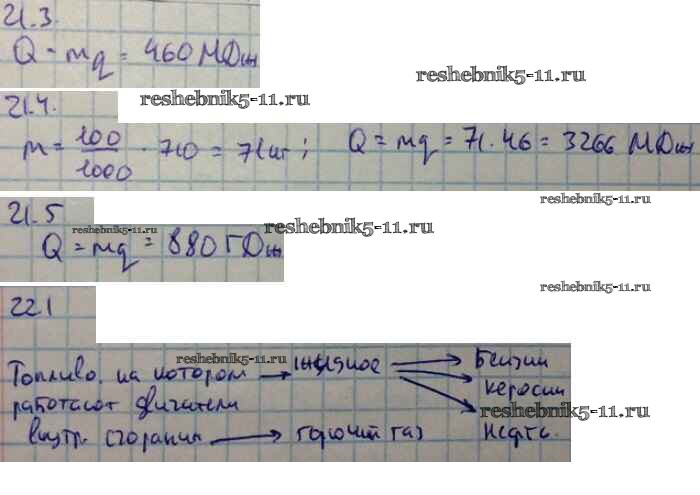 21.3.
Q = mq = 460 МДж
reshebnik5-11.ru
21.4.
reshebnik5-11.ru
m = 100/1000 · 710 = 71 кг; Q = mq = 71·46 = 3266 МДж
reshebnik5-11.ru
21.5
reshebnik5-11.ru
reshebnik5-11.ru
Q = mq = 880 ГДж
reshebnik5-11.ru
22.1
reshebnik5-11.ru
Топливо, на котором → жидкое → Бензин
керосин
работают двигатели
reshebnik5-11.ru
нефть.
внутр. сгорания → горючий газ